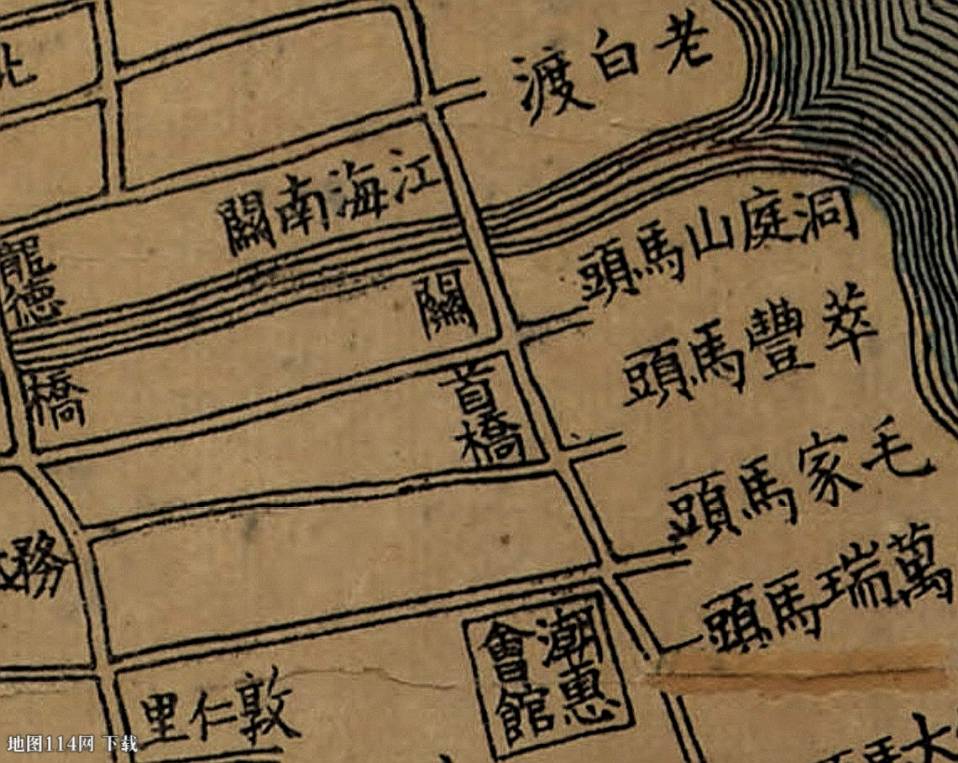 老白渡
江海南關
洞庭山馬頭
龍德橋
關首橋
萃豐馬頭
毛家馬頭
萬瑞馬頭
務
潮惠會館
敦仁里
大
地图114网 下载